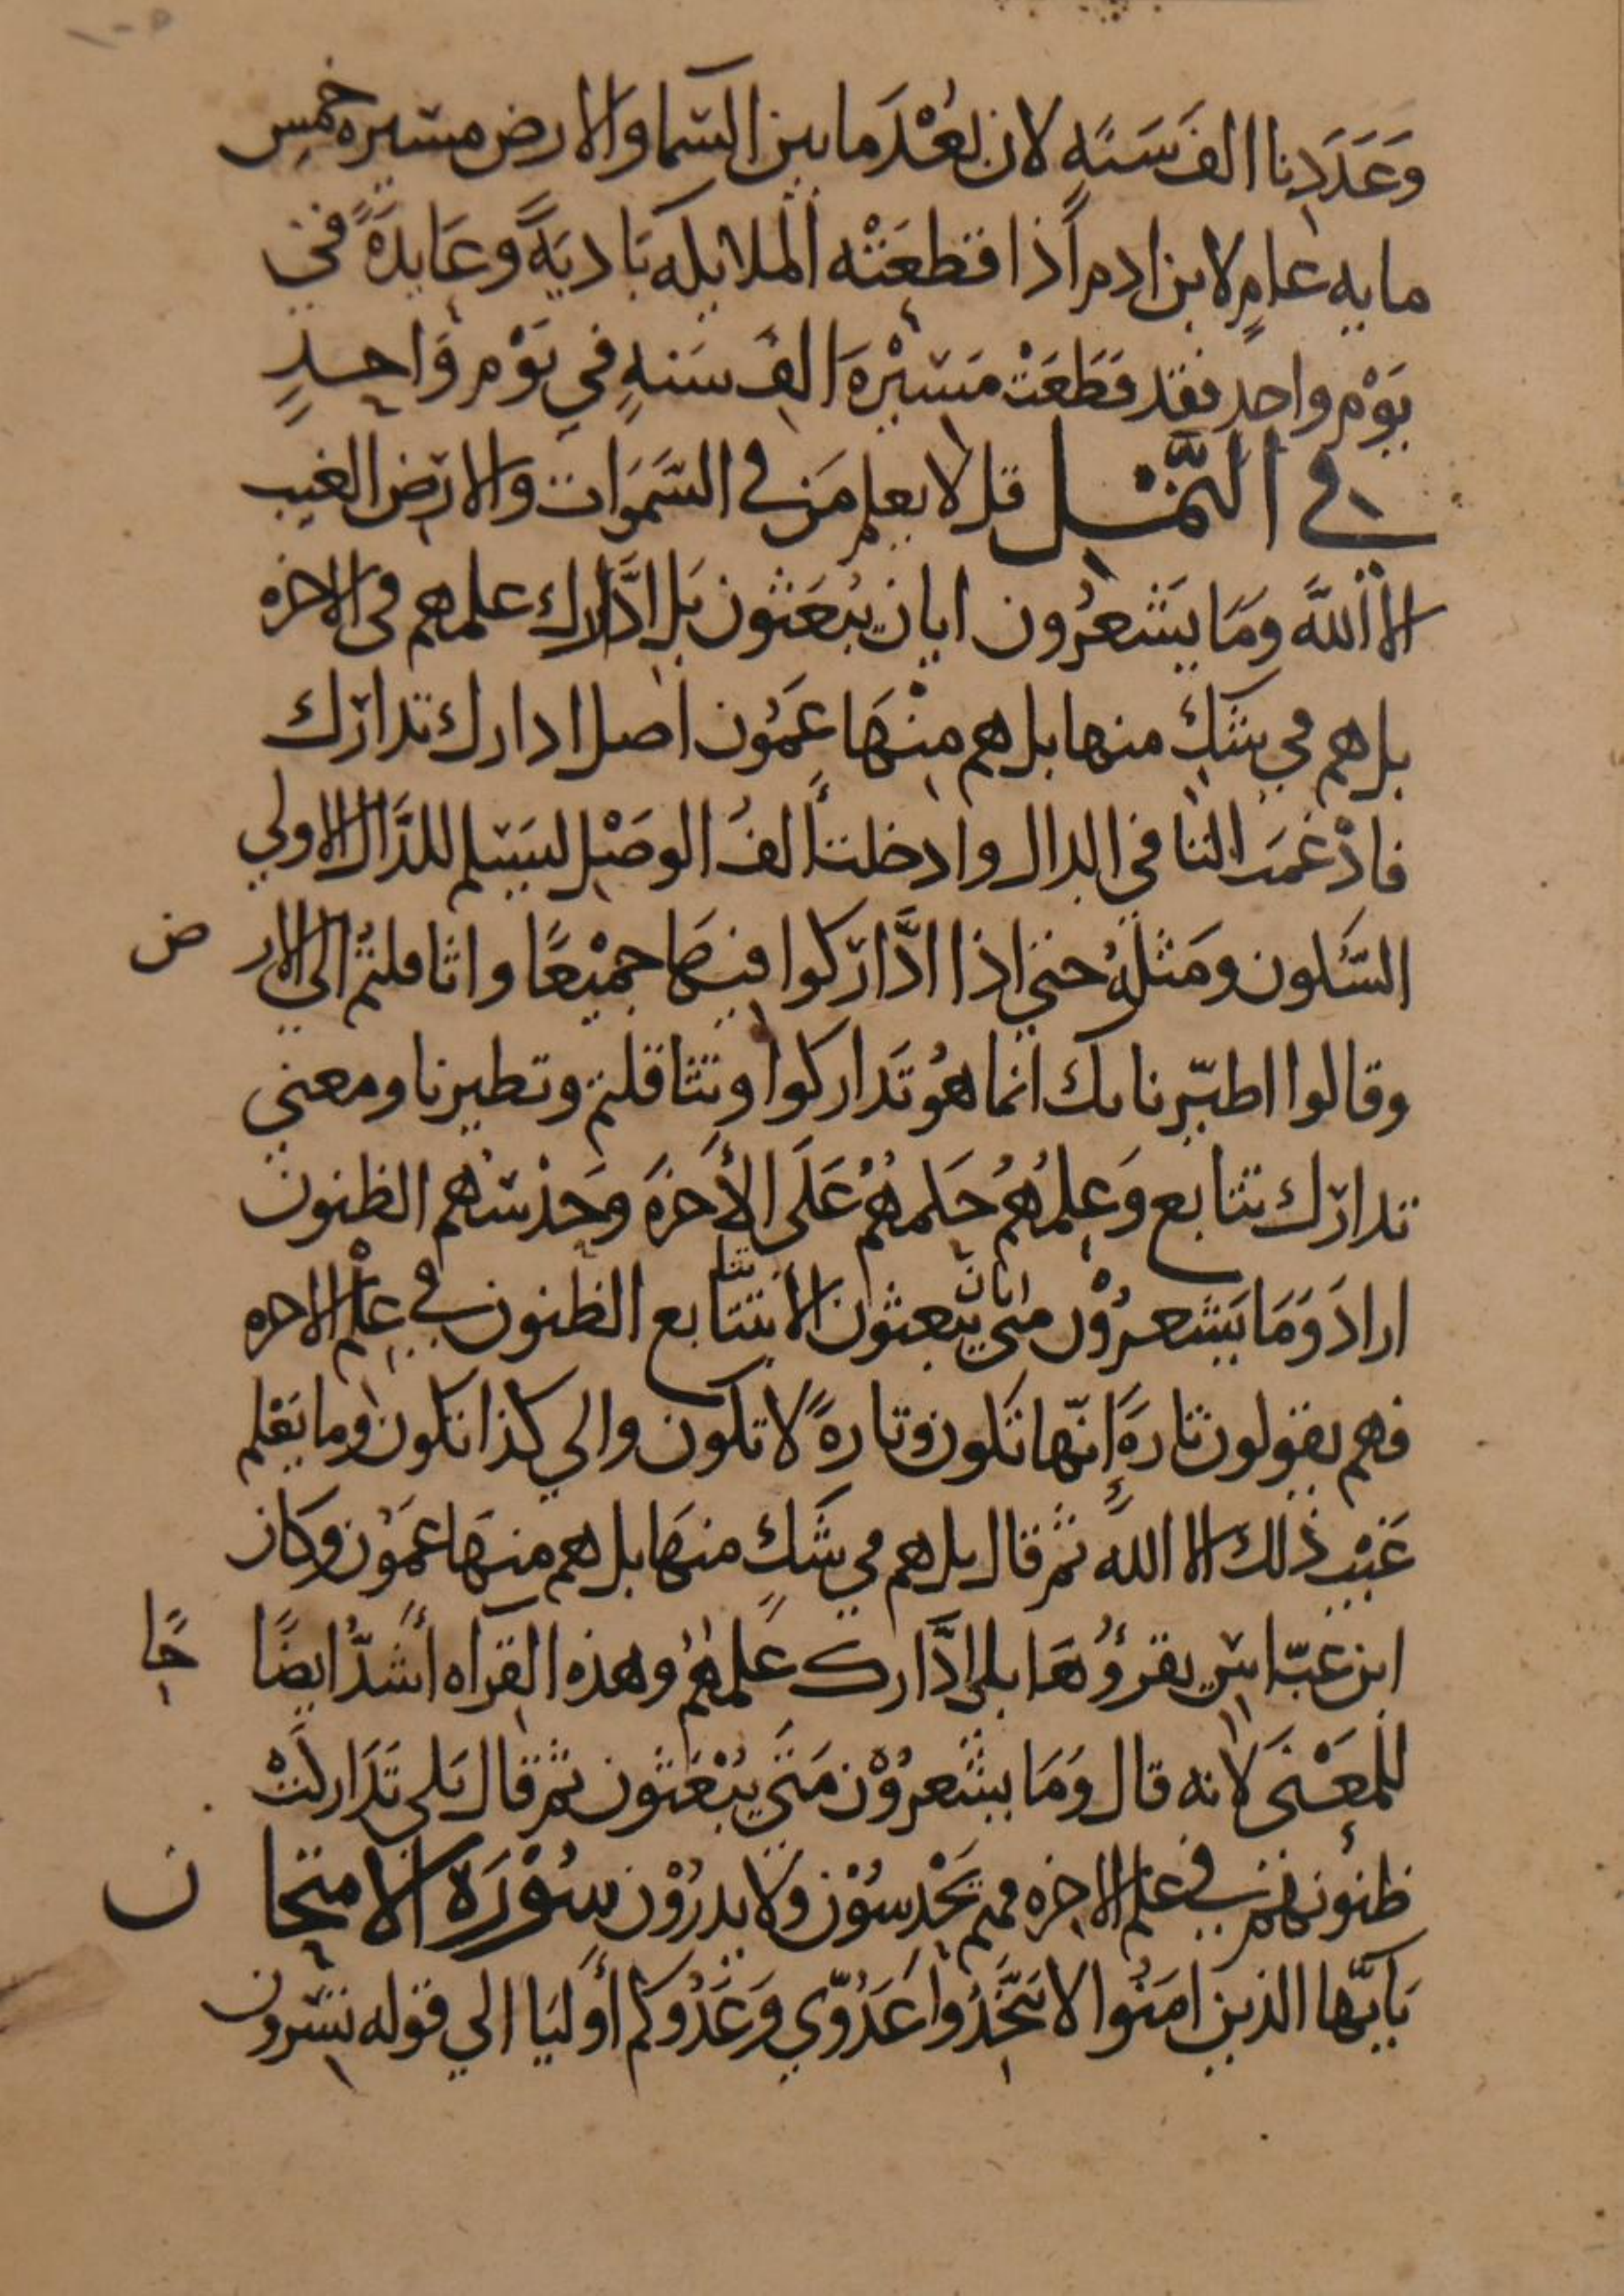 ١٠٥
وَعَدَدنا الفَ سَنَةٍ لان بُعْدَ ما بين السّما والارض مسيره خمسِ
مايه عامٍ لابن ادم اذا قطعَتْه الملايكه بَاديَةً وعَايدَةً في
يَوْمٍ واحدٍ فقد قَطَعَتْ مَسيْرَة الفِ سَنهٍ في يَوْمٍ وَاحدٍ
في النَّمْل قل لا يعلم مَن في السَّمَوَات والارض الغيب
الا اللّهُ وَمَا يَشعُرُون ايان يُبعَثون بَل ادَّارك علمهم في الاخره
بل هم في شكٍ منها بل هم مِنْهَا عَمُون اصل ادارك تدارك
فادْغمَت التا في الدال وادخلت الفُ الوصْل ليسلم للدَّال الاولي
السّكون ومَثلهُ حتي اذا ادَّاركوا فيهَا جميْعًا واثاقلتُم الي الارض
وقالوا اطيّرنا بك انما هُو تَداركوا وتثاقلتم وتطيرنا ومعني
تدارك تتابع وَعِلمُهُم حكمهُمْ عَلَي الأخرَه وَحدْسُهم الظنون
ارادَ وَمَا يَشعرُوْن متي ايانَ يبعثون الا بتتابع تتا الظنون في عِلْم الاخره
فهم يقولون تارةً إنّها تكون وتارةً لا تكون والي كذا تكون وما يَعْلم
غَيْبَ ذلك الا اللّه ثم قال بل هم في شكٍ منهَا بل هم منهَا عَمُون وكان
ابن عبّاسٍ يقرؤُهَا بلي ادَّارك عَلمُهُم وهذه القراه أشَدُّ ايضًا حًا
للمَعْنَي لانه قال وَمَا يشْعرُوْن مَتَي يُبْعَثون ثم قال بَلي تَدَاركَتْ
ظنُونهُم في علم الاخره فهم يَحْدسُوْن ولا يدرُوْن سُوْرَة الامتحان
يَايّها الذين امَنُوا لا تَتَّخذُوا عَدُوّي وَعَدُوكم أوليَا الي قوله تسرون